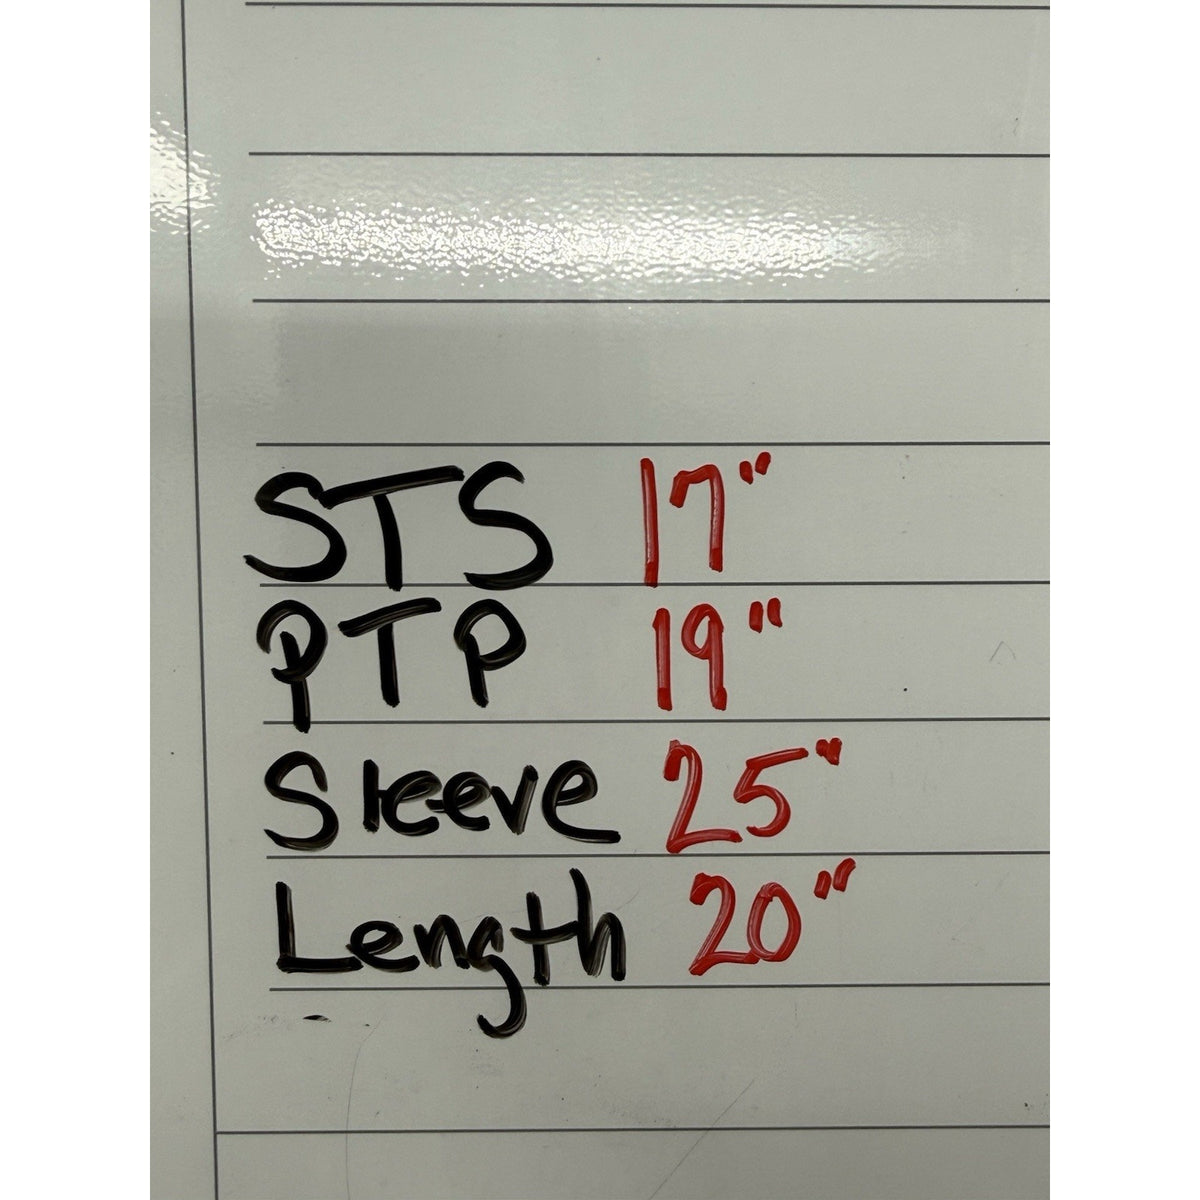 STS 17"
PTP 19"
Sleeve 25"
Length 20"